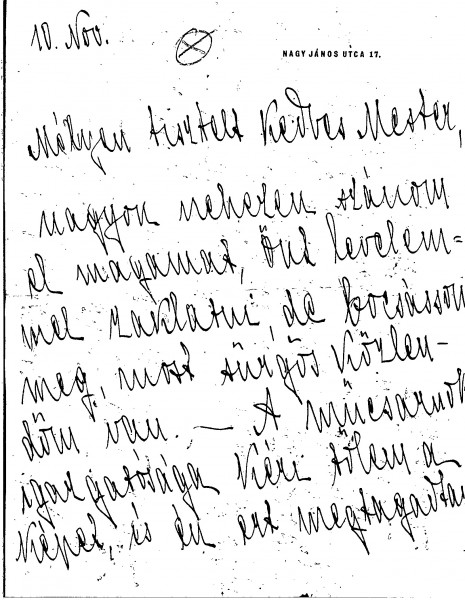 10. Nov.
NAGY JÁNOS UTCA 17.
Mélyen tisztelt kedves Mester,
nagyon nehezen szánom
el magamat, Önt levelem-
mel zaklatni, de bocsásson
meg, most sürgős közlen-
dőm van. — A műcsarnok
igazgatósága kéri tőlem a
képet, és én ezt megtagadtam